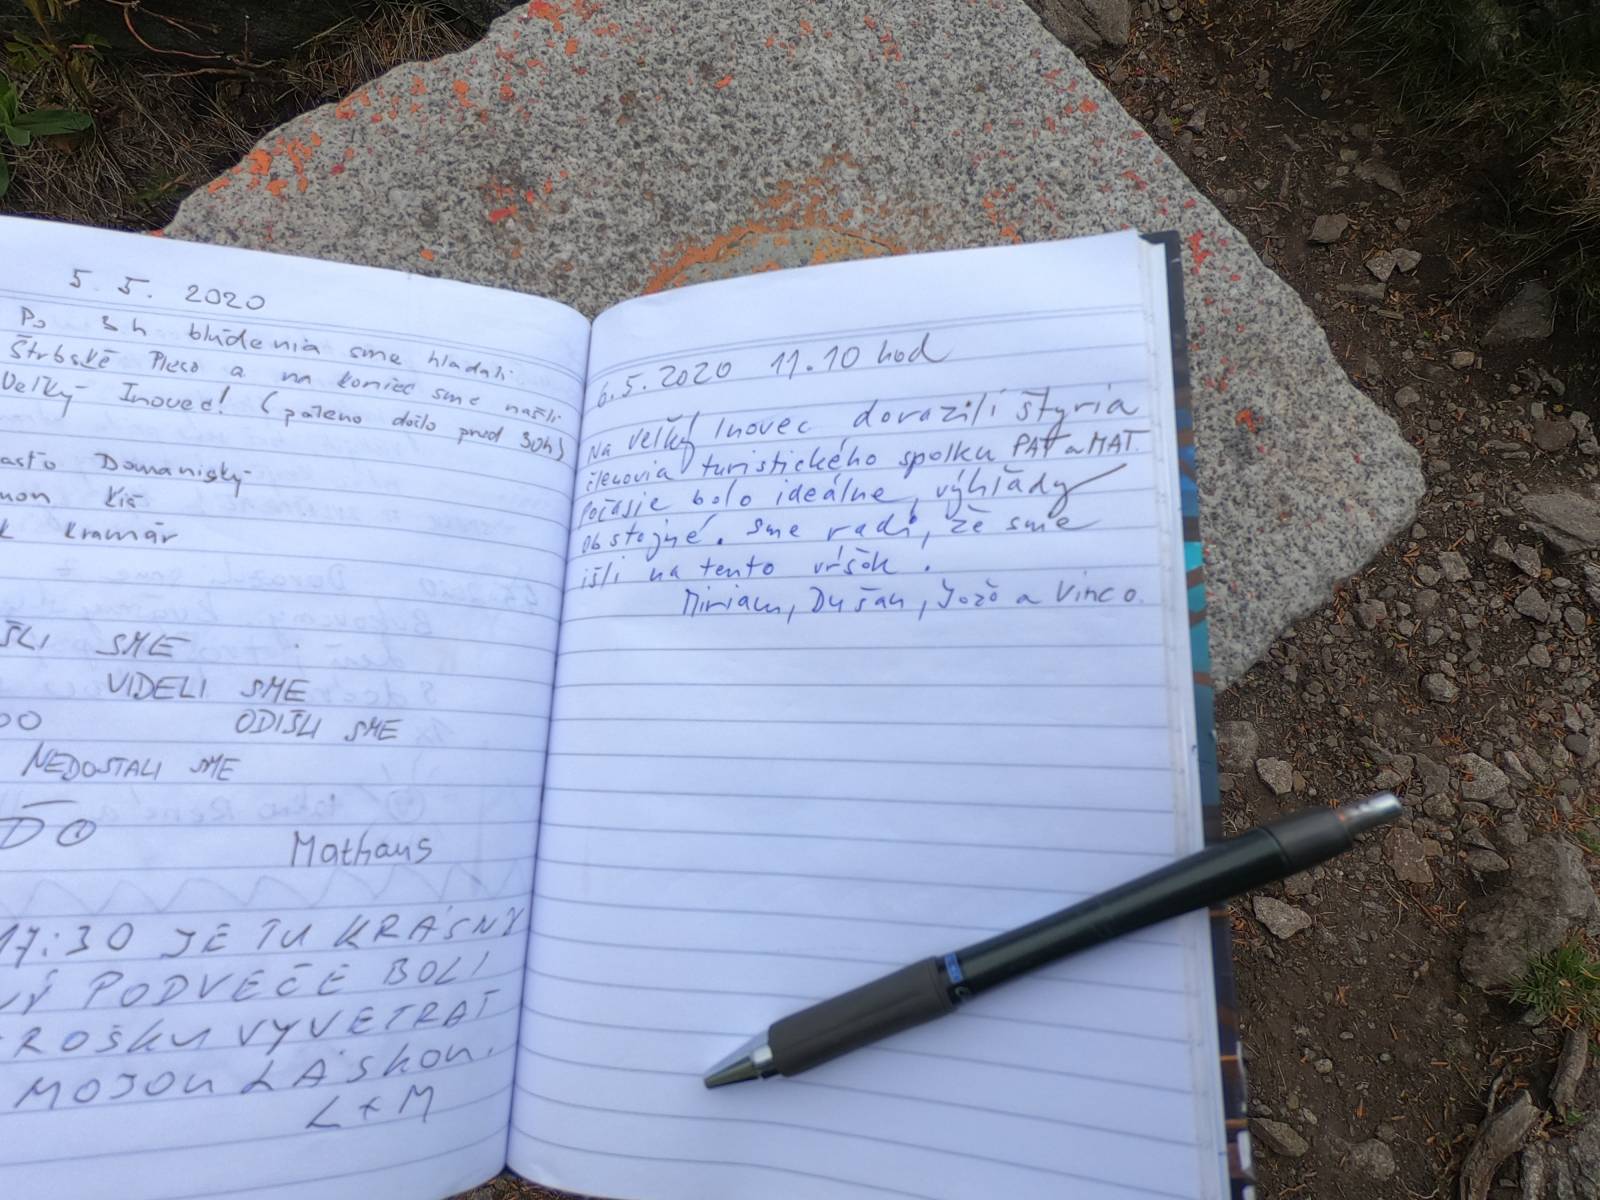 5. 5. 2020
Po 3h blúdenia sme hladali
Štrbské Pleso a na koniec sme našli
Veľký Inovec! (páleno došlo pred 30h)
Domanický
Kiš
k Kramár
ŠLI SME
VIDELI SME
ODIŠLI SME
NEDOSTALI SME
Mathaus
17:30 JE TU KRÁSNY
PODVEČE BOLI
VYVETRAŤ
MOJOU LÁSKOU.
L + M
6.5.2020 11.10 hod
Na Veľký Inovec dorazili štyria
členovia turistického spolku PAŤ a MAT.
Počasie bolo ideálne, výhľady
obstojné. Sme radi, že sme
išli na tento vŕšok.
Miriam, Dušan, Jožo a Vinco.